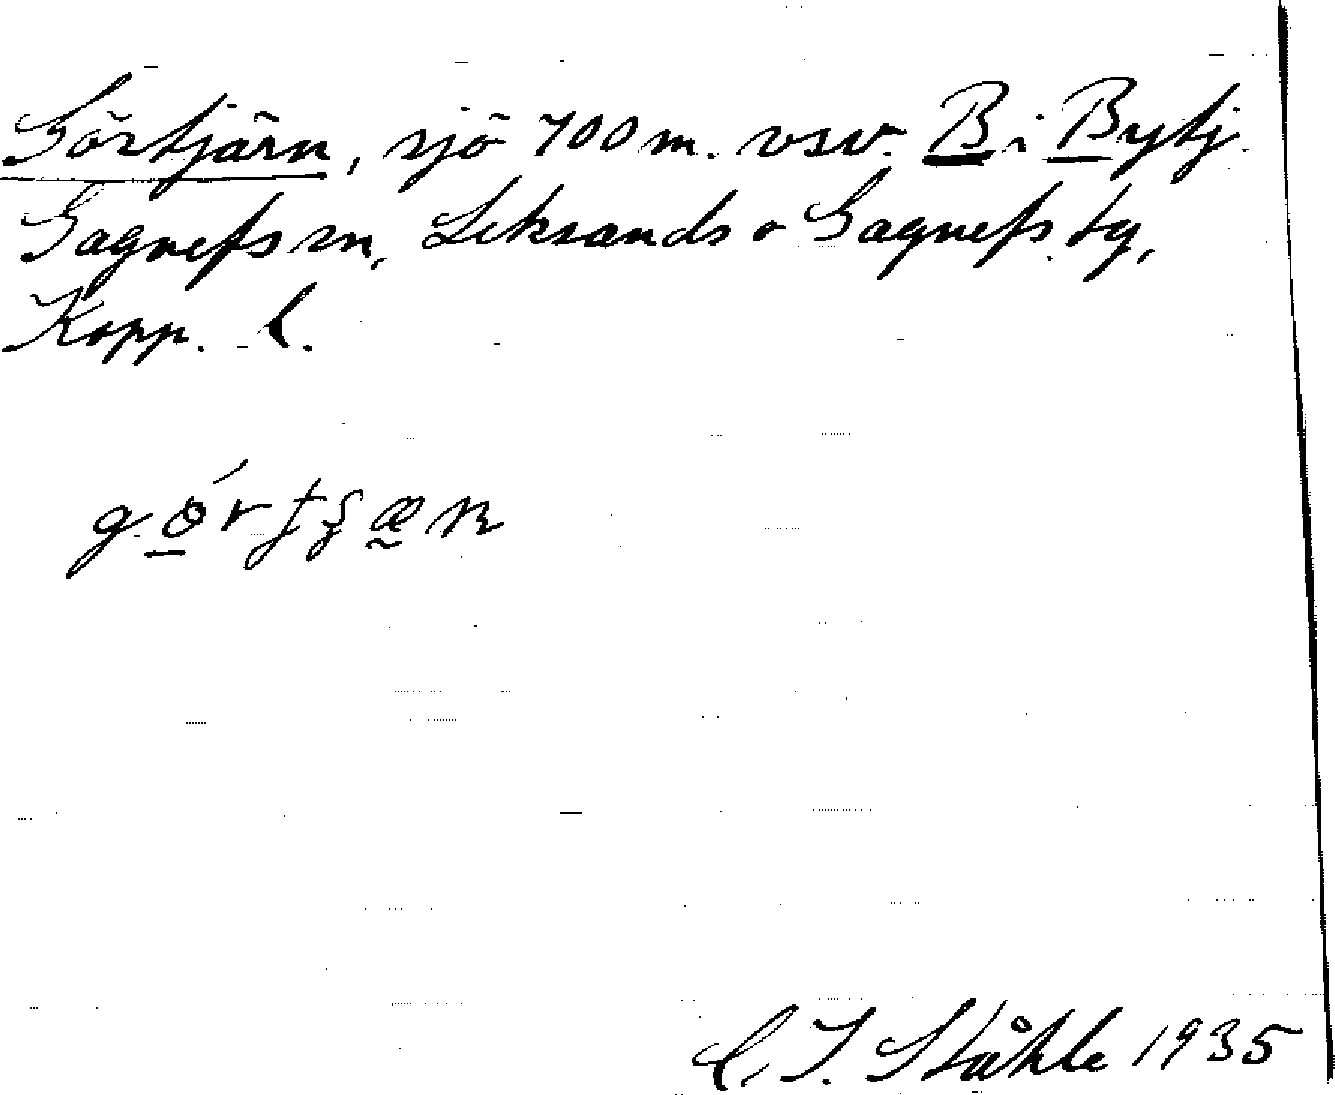 Görtjärn, sjö 700 m. vsv. B i Bytj.
Gagnefs sn, Leksands o Gagnefs tg,
Kopp. l.
C. I. Ståhle 1935